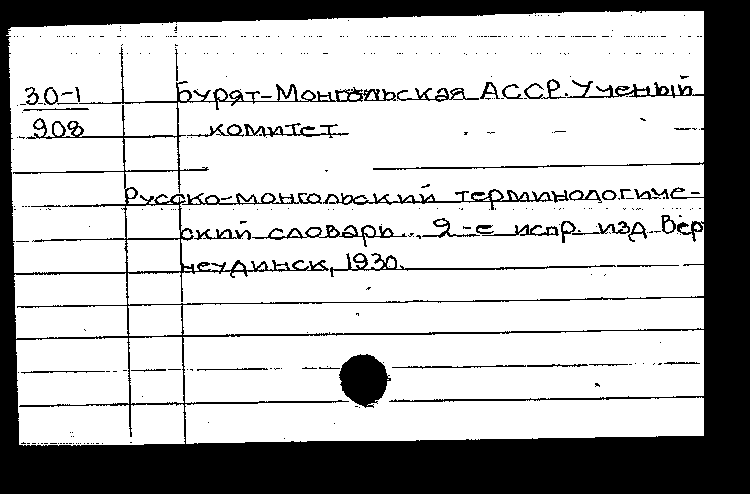 30-1 Бурят-Монгольская АССР. Ученый
908 комитет
Русско-монгольский терминологиче-
ский словарь.. 2-е испр. изд Вер
неудинск, 1930.